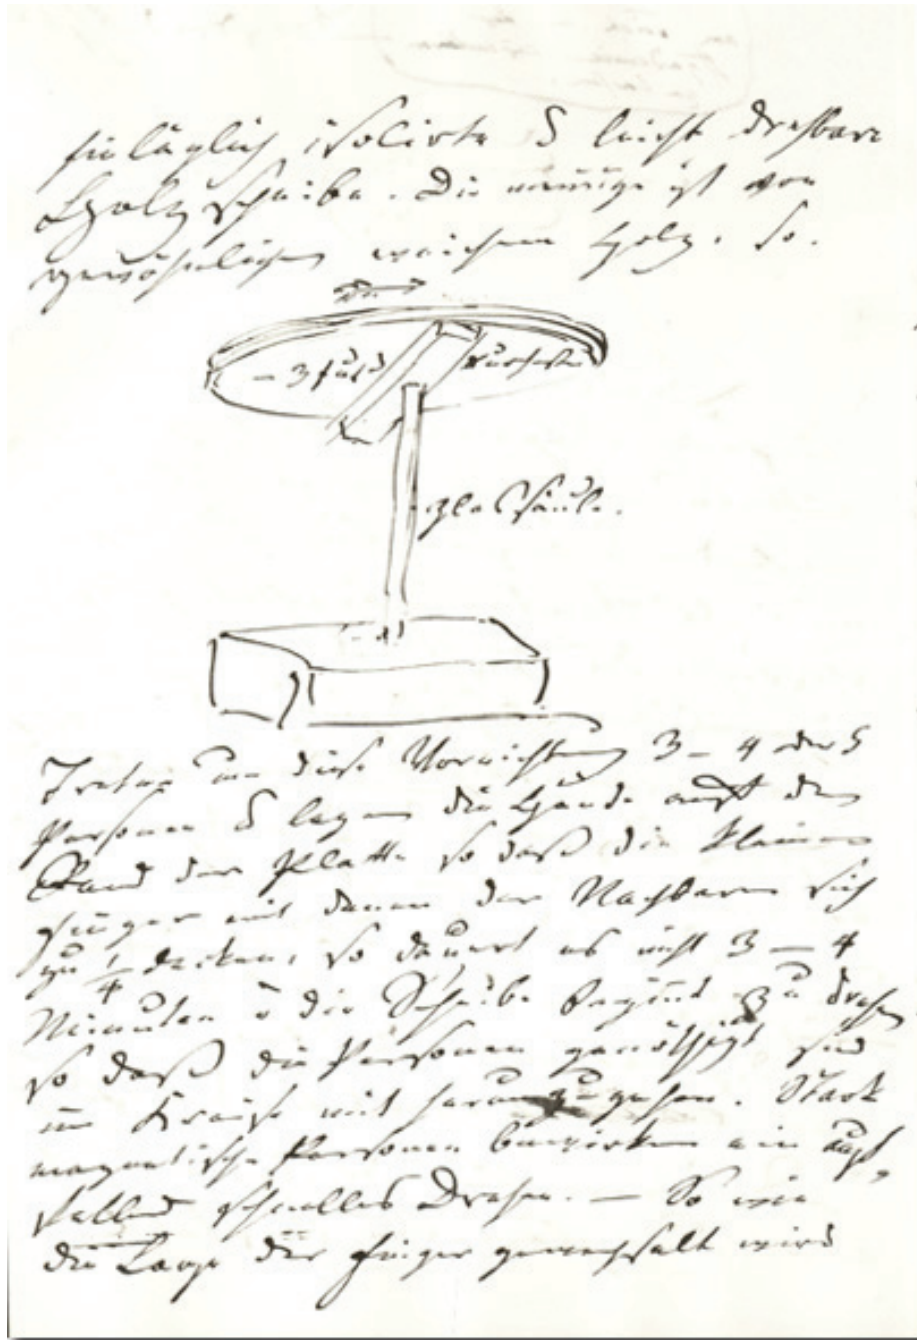 hinläglich isolirte & leicht drehbare
Holzscheibe. Die meinige ist von
gewöhnlichem weichem Holz. So.
– 3 Fuß Durchm
Glassäule.
Treten an diese Vorrichtung 3 – 4 oder 5
Personen & legen die Hände auf den
Rand der Platte so daß die kleinen
Finger mit denen der Nachbarn sich
zu 1/4 decken, so dauert es nicht 3 – 4
Minuten & die Scheibe begint zu drehen
so daß die Personen genöthigt sind
im Kreise mit herumzugehen. Stark
magnetische Personen bewirken ein auf-
fallend schnelles Drehen. – So wie
die Lage der Finger gewechselt wird